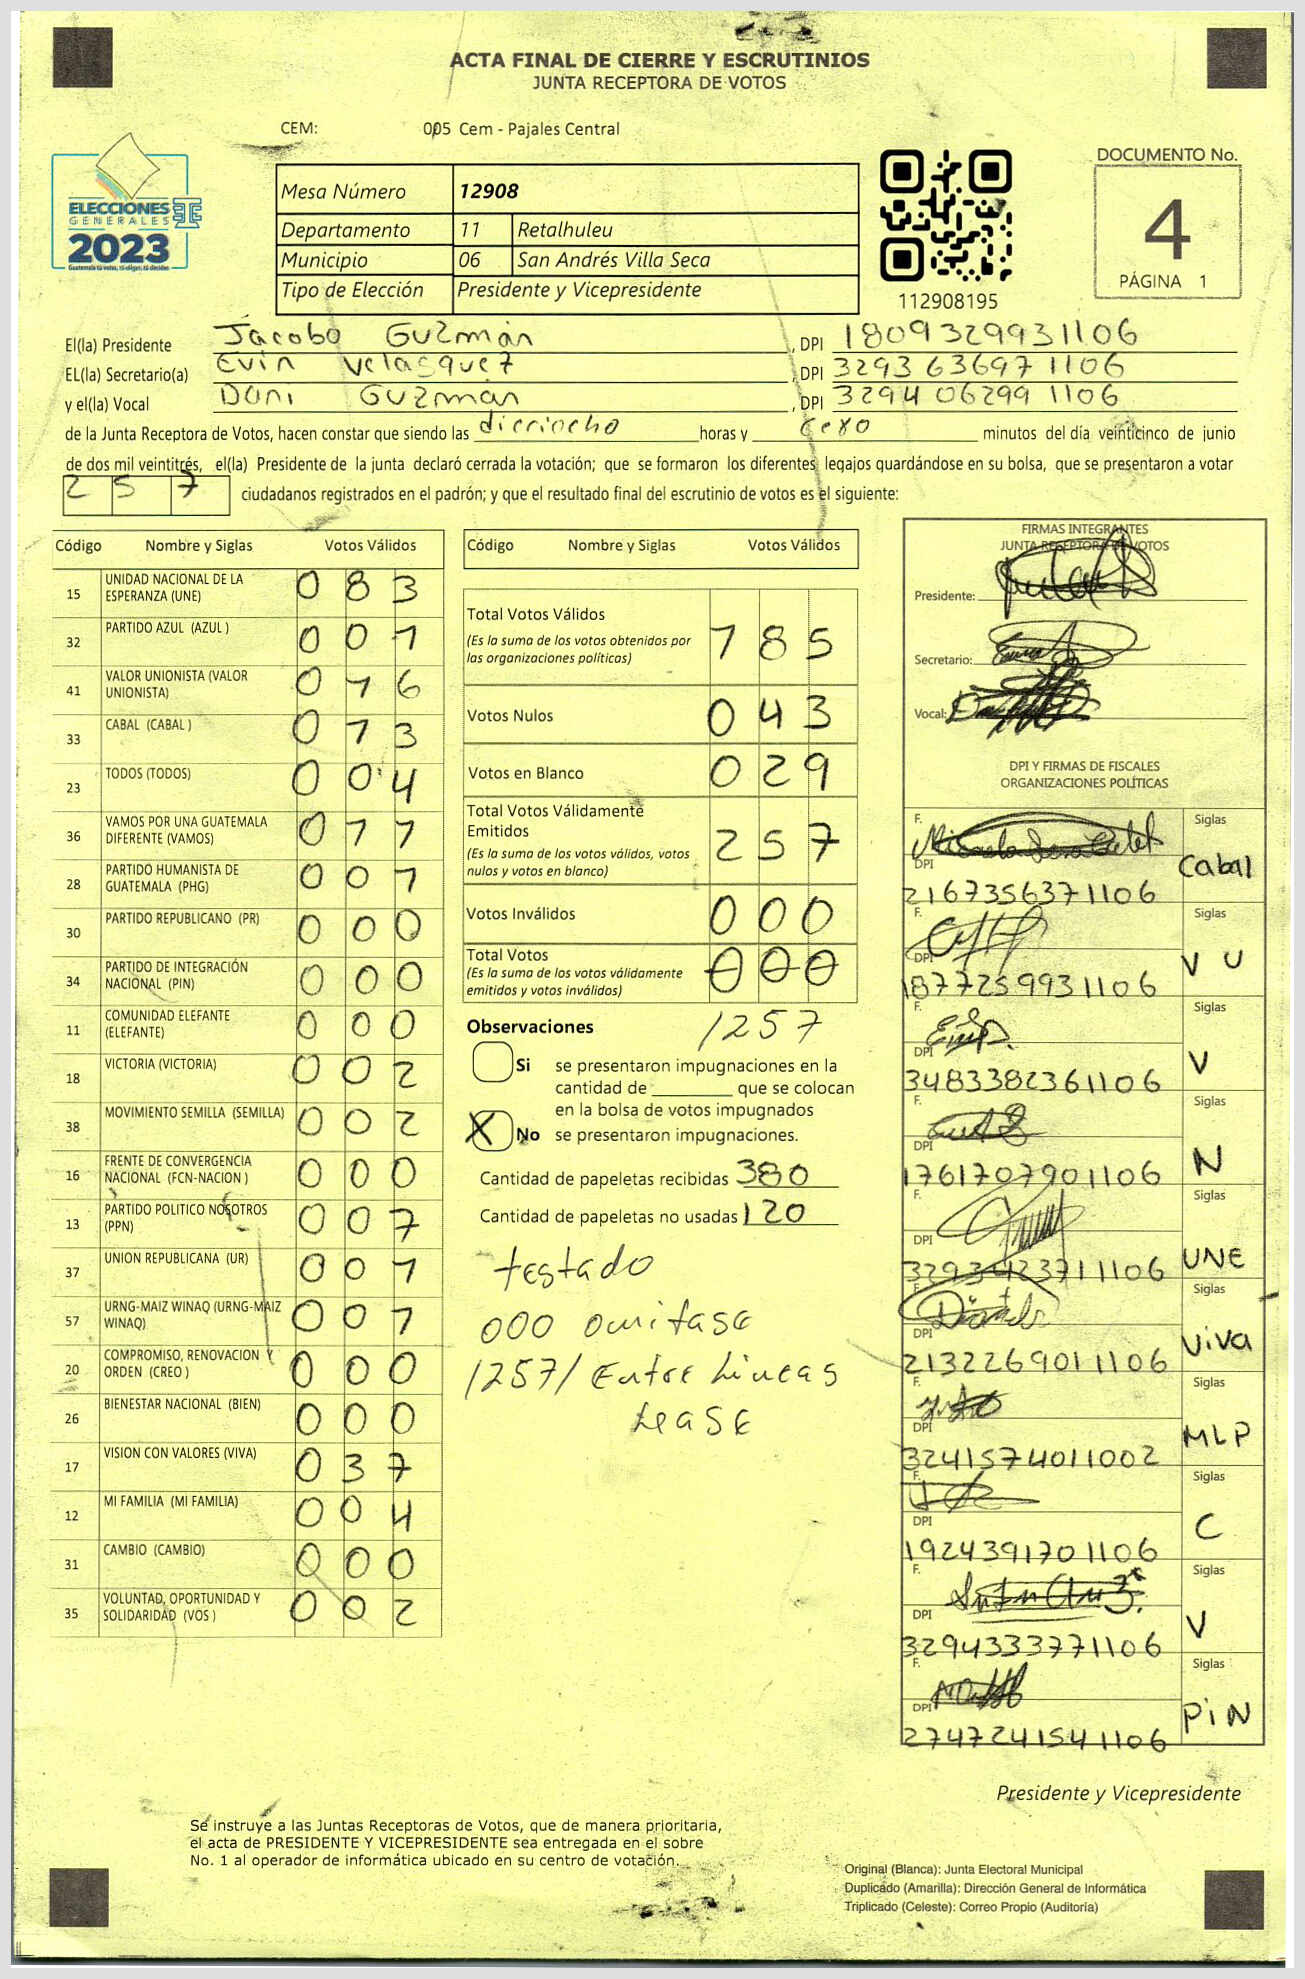 ACTA FINAL DE CIERRE Y ESCRUTINIOS
JUNTA RECEPTORA DE VOTOS
CEM: 005 Cem - Pajales Central
ELECCIONES
GENERALES
2023
Guatemala tú votas, tú eliges, tú decides
Mesa Número 12908
Departamento 11 Retalhuleu
Municipio 06 San Andrés Villa Seca
Tipo de Elección Presidente y Vicepresidente
112908195
DOCUMENTO No.
4
PÁGINA 1
El(la) Presidente Jacobo Guzmán , DPI 1809329931106
EL(la) Secretario(a) Evin Velasquez , DPI 3293636971106
y el(la) Vocal Dani Guzmán , DPI 3294062991106
de la Junta Receptora de Votos, hacen constar que siendo las dieciocho horas y cero minutos del día veinticinco de junio
de dos mil veintitrés, el(la) Presidente de la junta declaró cerrada la votación; que se formaron los diferentes legajos guardándose en su bolsa, que se presentaron a votar
257 ciudadanos registrados en el padrón; y que el resultado final del escrutinio de votos es el siguiente:
Código Nombre y Siglas Votos Válidos
15 UNIDAD NACIONAL DE LA ESPERANZA (UNE) 083
32 PARTIDO AZUL (AZUL ) 001
41 VALOR UNIONISTA (VALOR UNIONISTA) 016
33 CABAL (CABAL ) 013
23 TODOS (TODOS) 004
36 VAMOS POR UNA GUATEMALA DIFERENTE (VAMOS) 017
28 PARTIDO HUMANISTA DE GUATEMALA (PHG) 001
30 PARTIDO REPUBLICANO (PR) 000
34 PARTIDO DE INTEGRACIÓN NACIONAL (PIN) 000
11 COMUNIDAD ELEFANTE (ELEFANTE) 000
18 VICTORIA (VICTORIA) 002
38 MOVIMIENTO SEMILLA (SEMILLA) 002
16 FRENTE DE CONVERGENCIA NACIONAL (FCN-NACION ) 000
13 PARTIDO POLITICO NOSOTROS (PPN) 007
37 UNION REPUBLICANA (UR) 001
57 URNG-MAIZ WINAQ (URNG-MAIZ WINAQ) 001
20 COMPROMISO, RENOVACION Y ORDEN (CREO ) 000
26 BIENESTAR NACIONAL (BIEN) 000
17 VISION CON VALORES (VIVA) 037
12 MI FAMILIA (MI FAMILIA) 004
31 CAMBIO (CAMBIO) 000
35 VOLUNTAD, OPORTUNIDAD Y SOLIDARIDAD (VOS ) 002
Código Nombre y Siglas Votos Válidos
Total Votos Válidos 185
(Es la suma de los votos obtenidos por
las organizaciones políticas)
Votos Nulos 043
Votos en Blanco 029
Total Votos Válidamente
Emitidos 257
(Es la suma de los votos válidos, votos
nulos y votos en blanco)
Votos Inválidos 000
Total Votos 000
(Es la suma de los votos válidamente
emitidos y votos inválidos)
/257
Observaciones
Si se presentaron impugnaciones en la
cantidad de ________ que se colocan
en la bolsa de votos impugnados
X No se presentaron impugnaciones.
Cantidad de papeletas recibidas 380
Cantidad de papeletas no usadas 120
testado
000 omitase
/257/ Entre Lineas
Lease
FIRMAS INTEGRANTES
JUNTA RECEPTORA DE VOTOS
Presidente:
Secretario:
Vocal:
DPI Y FIRMAS DE FISCALES
ORGANIZACIONES POLÍTICAS
F. Siglas
DPI Cabal
2167356371106
F. Siglas
DPI V U
1877259931106
F. Siglas
DPI V
3483382361106
F. Siglas
DPI N
1761707901106
F. Siglas
DPI UNE
3293423711106
F. Siglas
DPI Viva
2132269011106
F. Siglas
DPI MLP
3241574011002
F. Siglas
DPI C
1924391701106
F. Siglas
DPI V
3294333771106
F. Siglas
DPI PiN
2747241541106
Presidente y Vicepresidente
Se instruye a las Juntas Receptoras de Votos, que de manera prioritaria,
el acta de PRESIDENTE Y VICEPRESIDENTE sea entregada en el sobre
No. 1 al operador de informática ubicado en su centro de votación.
Original (Blanca): Junta Electoral Municipal
Duplicado (Amarilla): Dirección General de Informática
Triplicado (Celeste): Correo Propio (Auditoría)